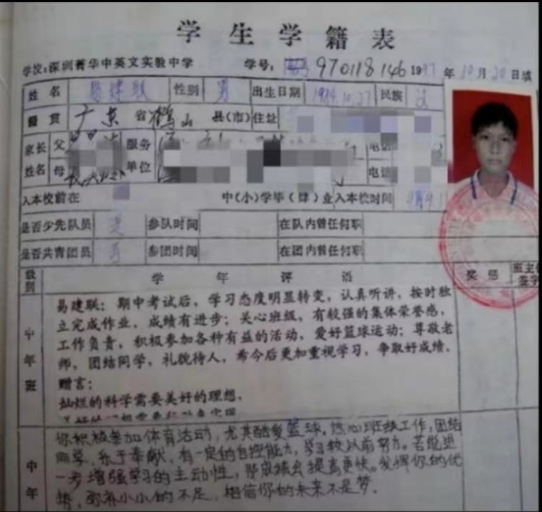 学生学籍表
学校：深圳菁华中英文实验中学 学号：970118146 1997年10月20日填
姓名 易建联 性别 男 出生日期 民族 汉
籍贯 广东省鹤山县(市) 住址
家长姓名 父 母 服务单位 电话 电话
入本校前在 中(小)学毕(肄)业入本校时间
是否少先队员 参队时间 在队内曾任何职
是否共青团员 参团时间 在团内曾任何职
级别 学年评语 奖惩 班主任签字
易建联：期中考试后，学习态度明显转变，认真听讲，按时独
立完成作业，成绩有进步；关心班级，有较强的集体荣誉感，
工作负责，积极参加各种有益的活动，爱好篮球运动；尊敬老
师，团结同学，礼貌待人，希今后更加重视学习，争取好成绩。
赠言：
灿烂的科学需要美好的理想，
中年班
你积极参加体育活动，尤其酷爱篮球。热心班级工作，团结
同学，乐于奉献，有一定的自控能力，学习较以前努力。若能进一
步增强学习的主动性，那成绩会提高更快。发挥你的优
势，弥补小小的不足，相信你的未来不是梦。
中年